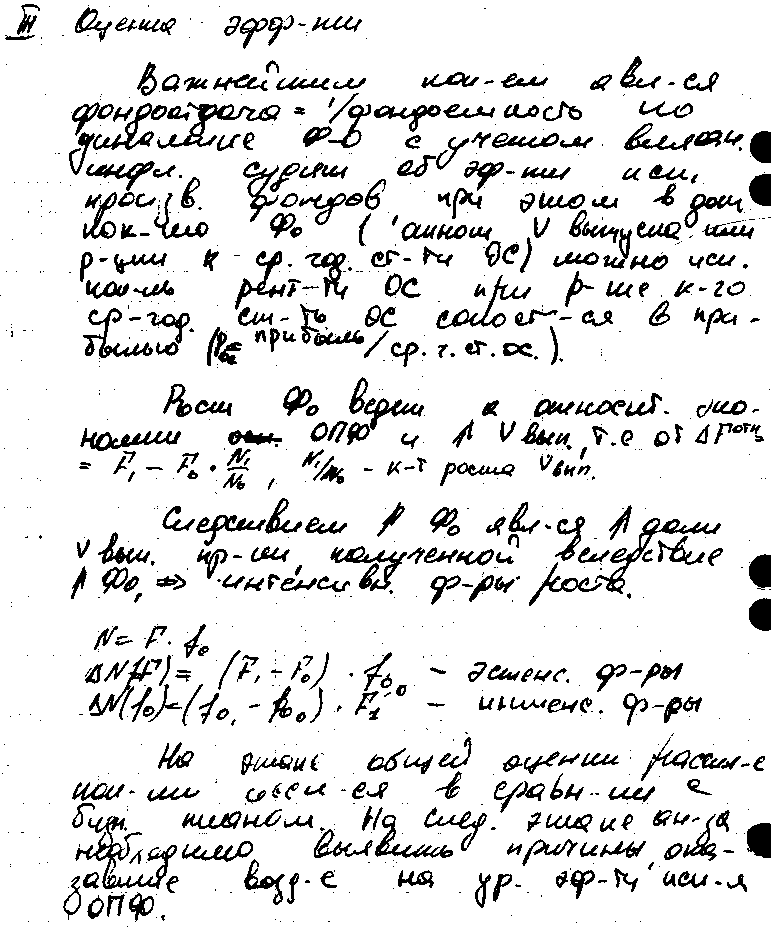 III Оценка эфф-ти
Важнейшим пок-ем явл-ся
фондоотдача = 1/фондоемкость по
динамике Ф-о с учетом влиян.
инфл. судят об эф-ти исп.
произв. фондов при этом в доп.
пок-лю Фо ( отнош V выпуска или
р-ции к ср. год. ст-ти ОС) можно исп.
пок-ль рент-ти ОС при р-те к-го
ср-год. ст-ть ОС сопост-ся в при-
былью (Рос= прибыль/ср. г. ст. ос.).
Рост Фо ведет к относит. эко-
номии ОПФ и ↑ V вып., т.е от ΔF отн
= F₁ - F₀ · N₁/N₀, N₁/N₀ - к-т роста V вып.
Следствием ↑ Фо явл-ся ↑ доли
V вып. пр-ии, полученной вследствие
↑ Фо, => интенсивн. ф-ры роста.
N = F · fo
ΔN(F) = (F₁ - F₀) · fo₀ - экстенс. ф-ры
ΔN(fo) = (fo₁ - fo₀) · F₁ - интенс. ф-ры
На этапе общей оценки рассм-е
пок-ли в сравн-ии с
биз. планом. На след. этапе ан-за
необходимо выявить причины, ока-
завшие возд-е на ур. эф-ти исп-я
ОПФ.